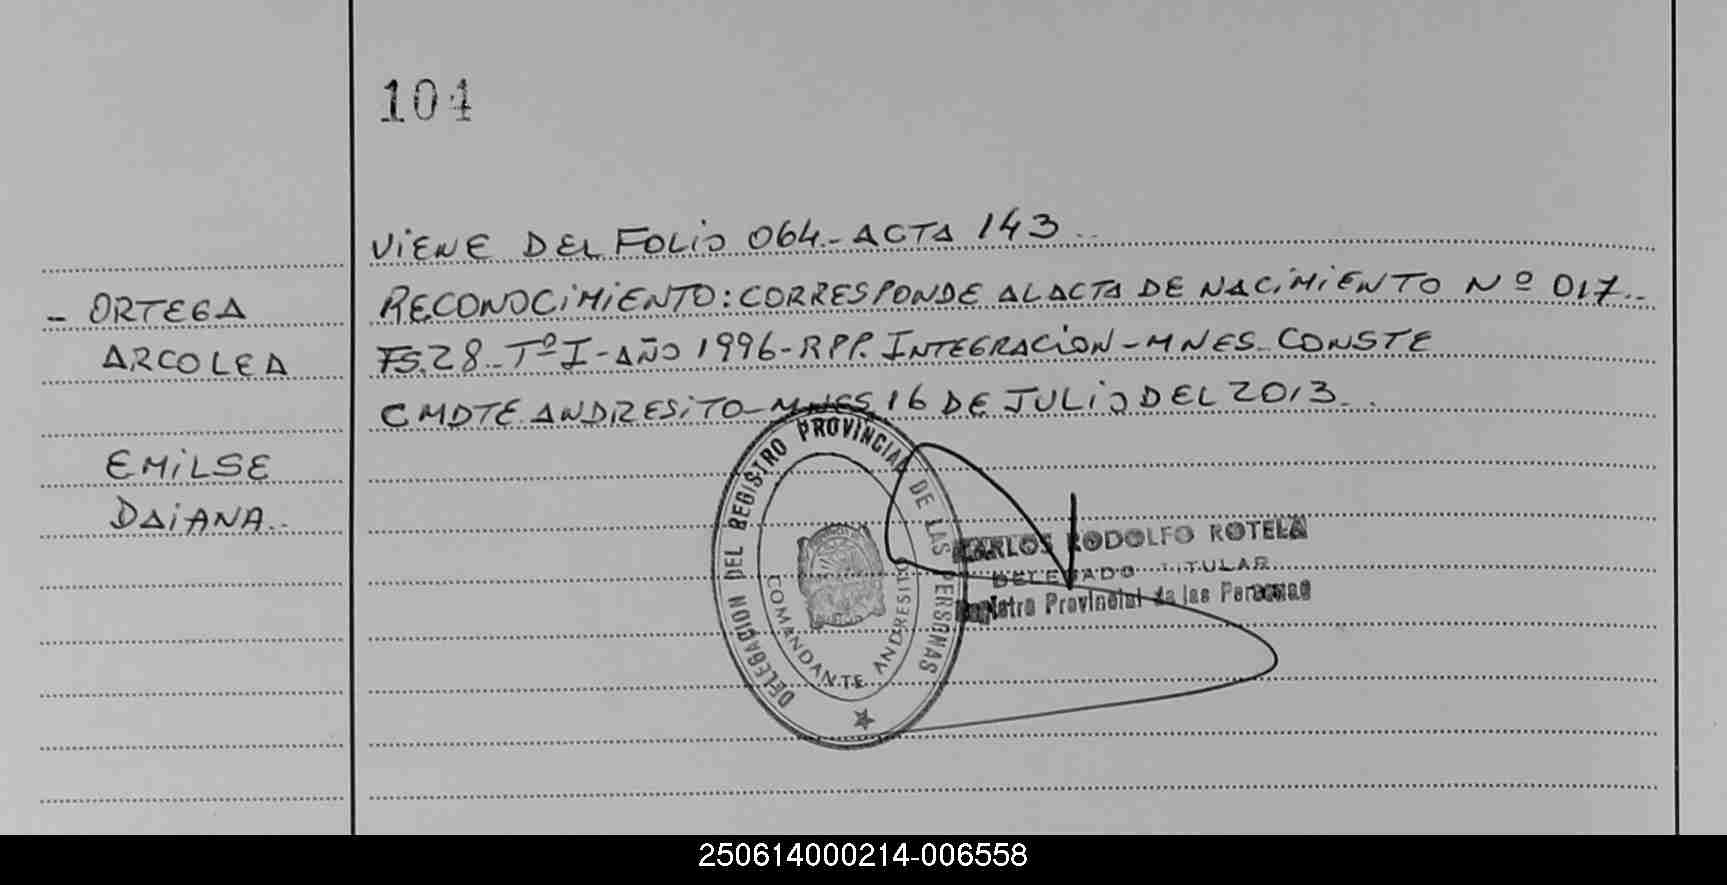 104
VIENE DEL FOLIO 064-ACTA 143..
- ORTEGA
ARCOLEA
EMILSE
DAIANA..
RECONOCIMIENTO: CORRESPONDE AL ACTA DE NACIMIENTO Nº 017..
FS.28-TºI-AÑO 1996-RPP. INTEGRACION-MNES-CONSTE
CMDTE.ANDRESITO-MNES, 16 DE JULIO DEL 2013...
DELEGACION DEL REGISTRO PROVINCIAL DE LAS PERSONAS
COMANDANTE ANDRESITO
CARLOS RODOLFO ROTELA
DELEGADO TITULAR
Registro Provincial de las Personas
250614000214-006558